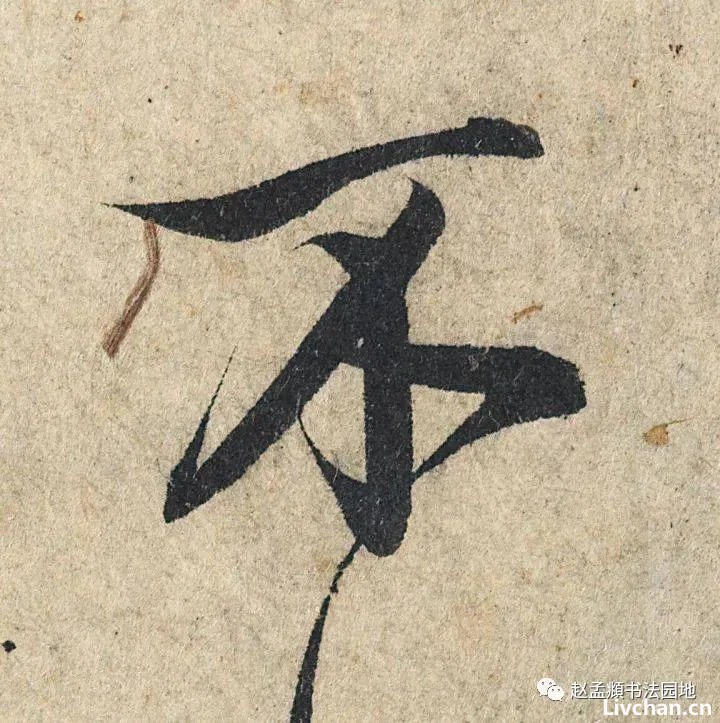 不
赵孟頫书法园地
Livchan.cn